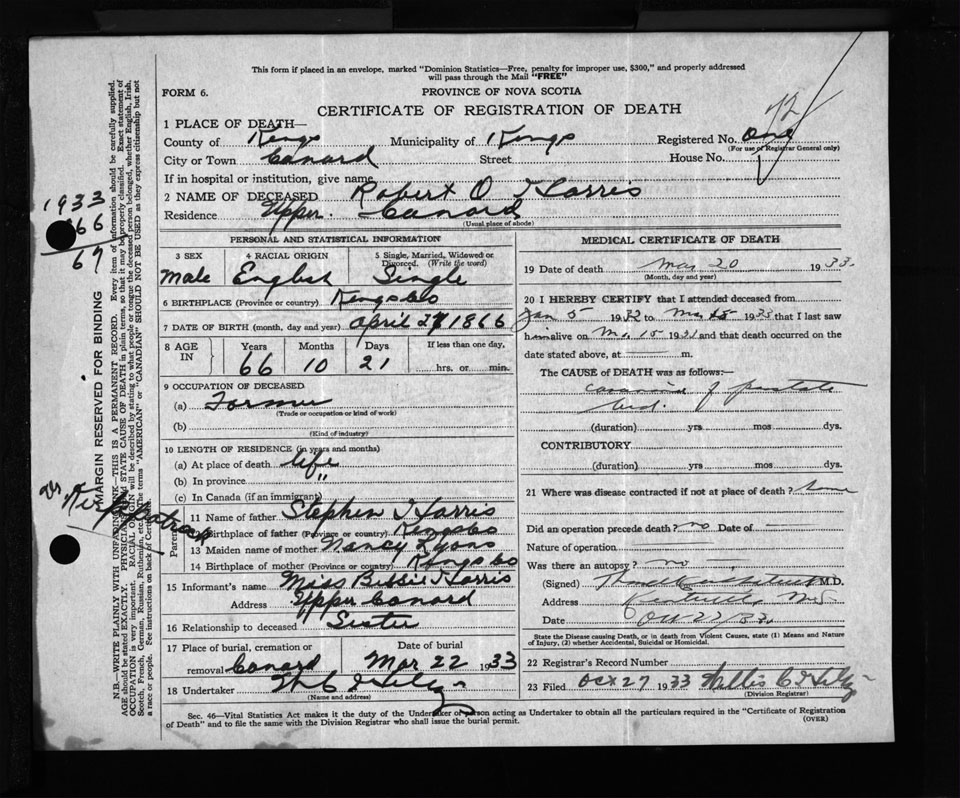 This form if placed in an envelope, marked "Dominion Statistics—Free, penalty for improper use, $300," and properly addressed
will pass through the Mail "FREE"
FORM 6.
PROVINCE OF NOVA SCOTIA
CERTIFICATE OF REGISTRATION OF DEATH
72
1 PLACE OF DEATH—
County of Kings Municipality of Kings Registered No. One
(For use of Registrar General only)
City or Town Canard Street House No.
If in hospital or institution, give name
2 NAME OF DECEASED Robert O Harris
Residence Upper Canard
(Usual place of abode)
PERSONAL AND STATISTICAL INFORMATION
3 SEX 4 RACIAL ORIGIN 5 Single, Married, Widowed or
Divorced. (Write the word)
Male English Single
6 BIRTHPLACE (Province or country) Kings Co
7 DATE OF BIRTH (month, day and year) April 27 1866
8 AGE IN Years Months Days If less than one day,
66 10 21 hrs. or min.
9 OCCUPATION OF DECEASED
(a) Farmer
(Trade or occupation or kind of work)
(b)
(Kind of industry)
10 LENGTH OF RESIDENCE (in years and months)
(a) At place of death life
(b) In province "
(c) In Canada (if an immigrant)
Parents
11 Name of father Stephen Harris
12 Birthplace of father (Province or country) Kings Co
13 Maiden name of mother Nancy Lyons
14 Birthplace of mother (Province or country) Kings Co
15 Informant's name Miss Bessie Harris
Address Upper Canard
16 Relationship to deceased Sister
17 Place of burial, cremation or Date of burial
removal Canard Mar 22 1933
18 Undertaker
(Name and address)
MEDICAL CERTIFICATE OF DEATH
19 Date of death Mar 20 1933
(Month, day and year)
20 I HEREBY CERTIFY that I attended deceased from
Jan 5 1932 to Mar 15 1933 that I last saw
him alive on Mar 15 193 and that death occurred on the
date stated above, at m.
The CAUSE of DEATH was as follows:—
carcinoma of prostate
(duration) yrs mos dys.
CONTRIBUTORY
(duration) yrs mos dys.
21 Where was disease contracted if not at place of death? home
Did an operation precede death? no Date of
Nature of operation
Was there an autopsy? no
(Signed) M.D.
Address Kentville, N.S.
Date Oct 27/33
State the Disease causing Death, or in death from Violent Causes, state (1) Means and Nature
of Injury, (2) whether Accidental, Suicidal or Homicidal.
22 Registrar's Record Number
23 Filed Oct 27 1933 Willis C
(Division Registrar)
Sec. 46—Vital Statistics Act makes it the duty of the Undertaker or person acting as Undertaker to obtain all the particulars required in the "Certificate of Registration
of Death" and to file the same with the Division Registrar who shall issue the burial permit.
(OVER)
1933
66
67
Dr. Kirkpatrick
MARGIN RESERVED FOR BINDING
N.B.—WRITE PLAINLY WITH UNFADING INK—THIS IS A PERMANENT RECORD. Every item of information should be carefully supplied.
AGE should be stated EXACTLY. PHYSICIANS should STATE CAUSE OF DEATH in plain terms, so that it may be properly classified. Exact statement of
OCCUPATION is very important. RACIAL ORIGIN will be described by stating to what people or tongue the deceased person belonged, whether English, Irish,
Scotch, French, German, Russian, Ruthenian, etc. The terms "AMERICAN" or "CANADIAN" SHOULD NOT BE USED as they express citizenship but not
a race or people. See instructions on back of Certificate.